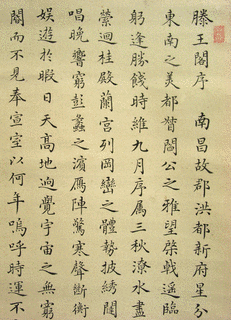 滕王閣序　南昌故郡洪都新府星分
東南之美都督閻公之雅望棨戟遥臨
躬逢勝餞時維九月序屬三秋潦水盡
縈迴桂殿蘭宮列岡巒之體勢披繡闥
唱晚響窮彭蠡之濱雁陣驚寒聲斷衡
娛遊於暇日天高地迥覺宇宙之無窮
閽而不見奉宣室以何年嗚呼時運不